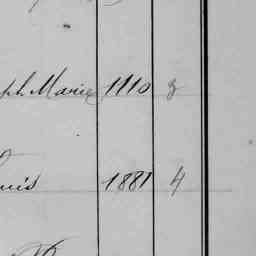 ph Marie 1110 8
uis 1881 4